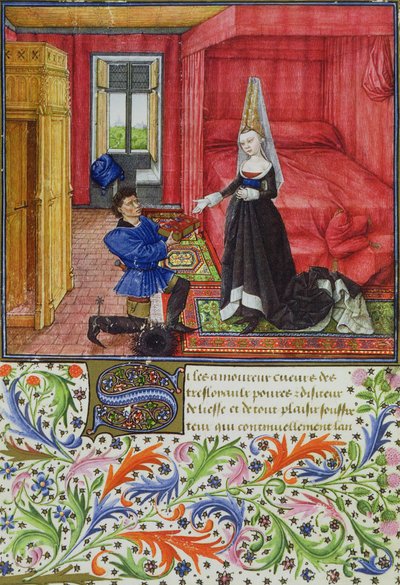 Si les amoureux cueurs des
tresloyaulx poures & diseteux
de liesse et de tout plaisir souffre
teux qui continuellement lan